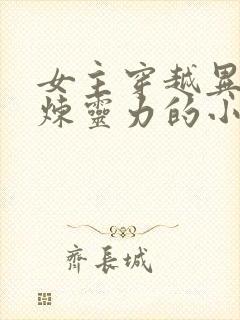 女主穿越異
煉靈力的小
齊長城